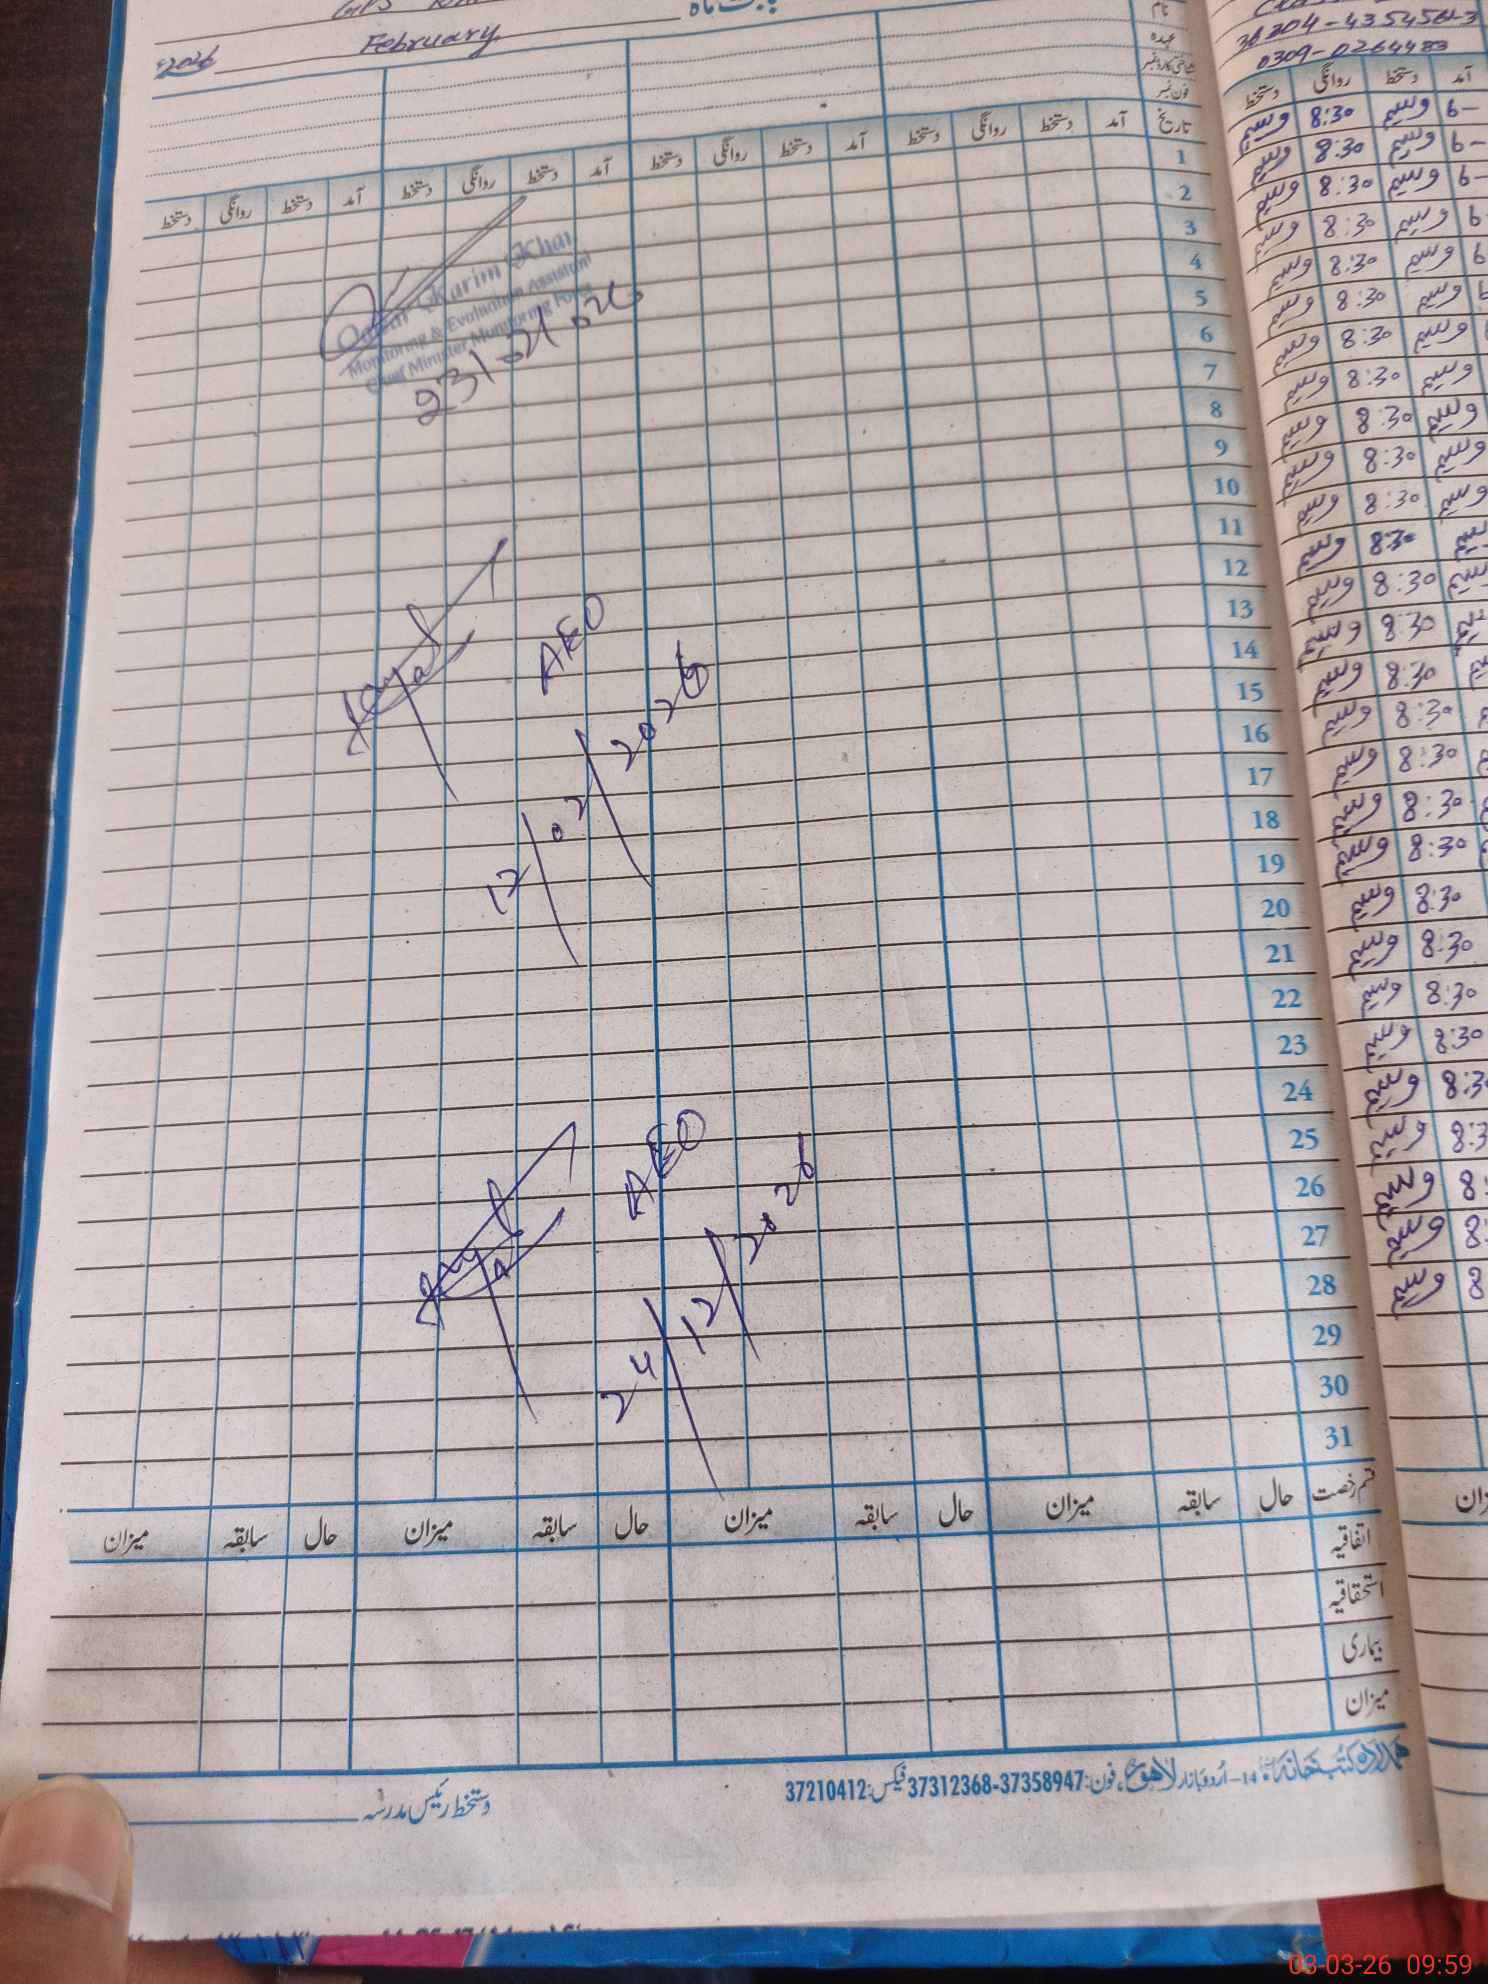 2026 February
بابت ماہ
نام
عہدہ
شناختی کارڈ نمبر
فون نمبر
تاریخ آمد دستخط روانگی دستخط آمد دستخط روانگی دستخط آمد دستخط روانگی دستخط آمد دستخط روانگی دستخط
1
2
3
4
5
6
7
8
9
10
11
12
13
14
15
16
17
18
19
20
21
22
23
24
25
26
27
28
29
30
31
Karim
Monitoring & Evaluation Assistant
Chief Minister Monitoring Force
AEO
12/02/2026
AEO
24/12/2026
قسم رخصت حال سابقہ میزان حال سابقہ میزان حال سابقہ میزان حال سابقہ میزان
اتفاقیہ
استحقاقیہ
بیماری
میزان
ہمدرد کتب خانہ 14-اُردو بازار لاہور، فون: 37358947-37312368 فیکس: 37210412
دستخط رئیس مدرسہ
0309-0264483
آمد دستخط روانگی دستخط
وسیم 8:30 وسیم
وسیم 8:30 وسیم
وسیم 8:30 وسیم
وسیم 8:30 وسیم
وسیم 8:30 وسیم
وسیم 8:30 وسیم
وسیم 8:30 وسیم
وسیم 8:30 وسیم
وسیم 8:30 وسیم
وسیم 8:30 وسیم
وسیم 8:30 وسیم
8:30 وسیم
8:30 وسیم
8:30 وسیم
8:30 وسیم
8:30 وسیم
8:30 وسیم
8:30 وسیم
8:30 وسیم
8:30 وسیم
8:30 وسیم
8:30 وسیم
8:30 وسیم
وسیم
وسیم
وسیم
وسیم
وسیم
03-03-26 09:59